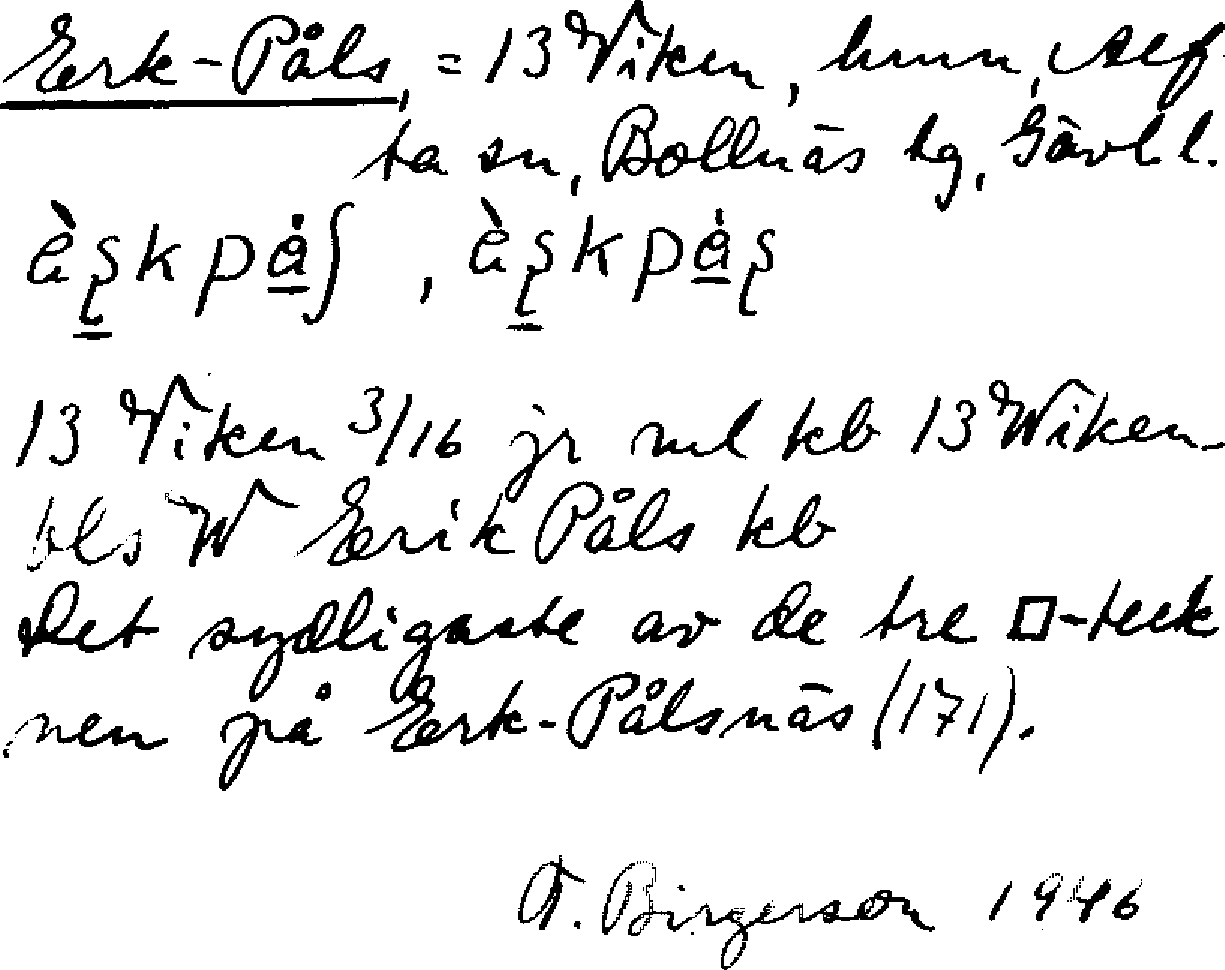 Eerk-Påls, = 13 Viken, hmn, Alf-
ta sn, Bollnäs tg, Gävl l.
13 Viken 3/16 jr ml kb 13 Wiken
bls W Eerik Påls kb
Det sydligaste av de tre □-teck
nen på Eerk-Pålsnäs (171).
T. Birgerson 1946